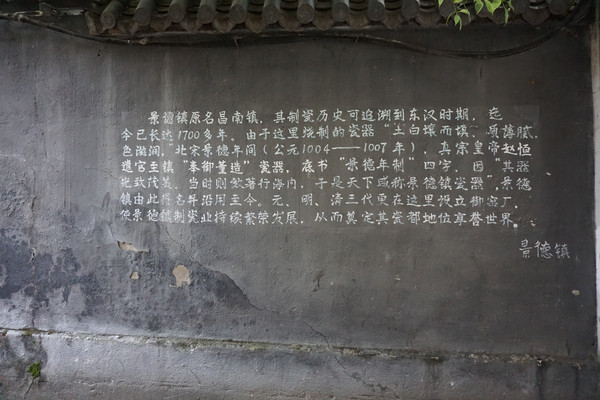 景德镇原名昌南镇，其制瓷历史可追溯到东汉时期，迄
今已长达1700多年。由于这里烧制的瓷器“土白壤而埴，质薄腻，
色滋润，”北宋景德年间（公元1004——1007年），真宗皇帝赵恒
遣官至镇“奉御董造”瓷器，底书“景德年制”四字，因“其器
光致茂美，当时则效著行海内，于是天下咸称景德镇瓷器”，景德
镇由此得名并沿用至今。元、明、清三代更在这里设立御窑厂，
使景德镇制瓷业持续繁荣发展，从而奠定其瓷都地位享誉世界。
景德镇